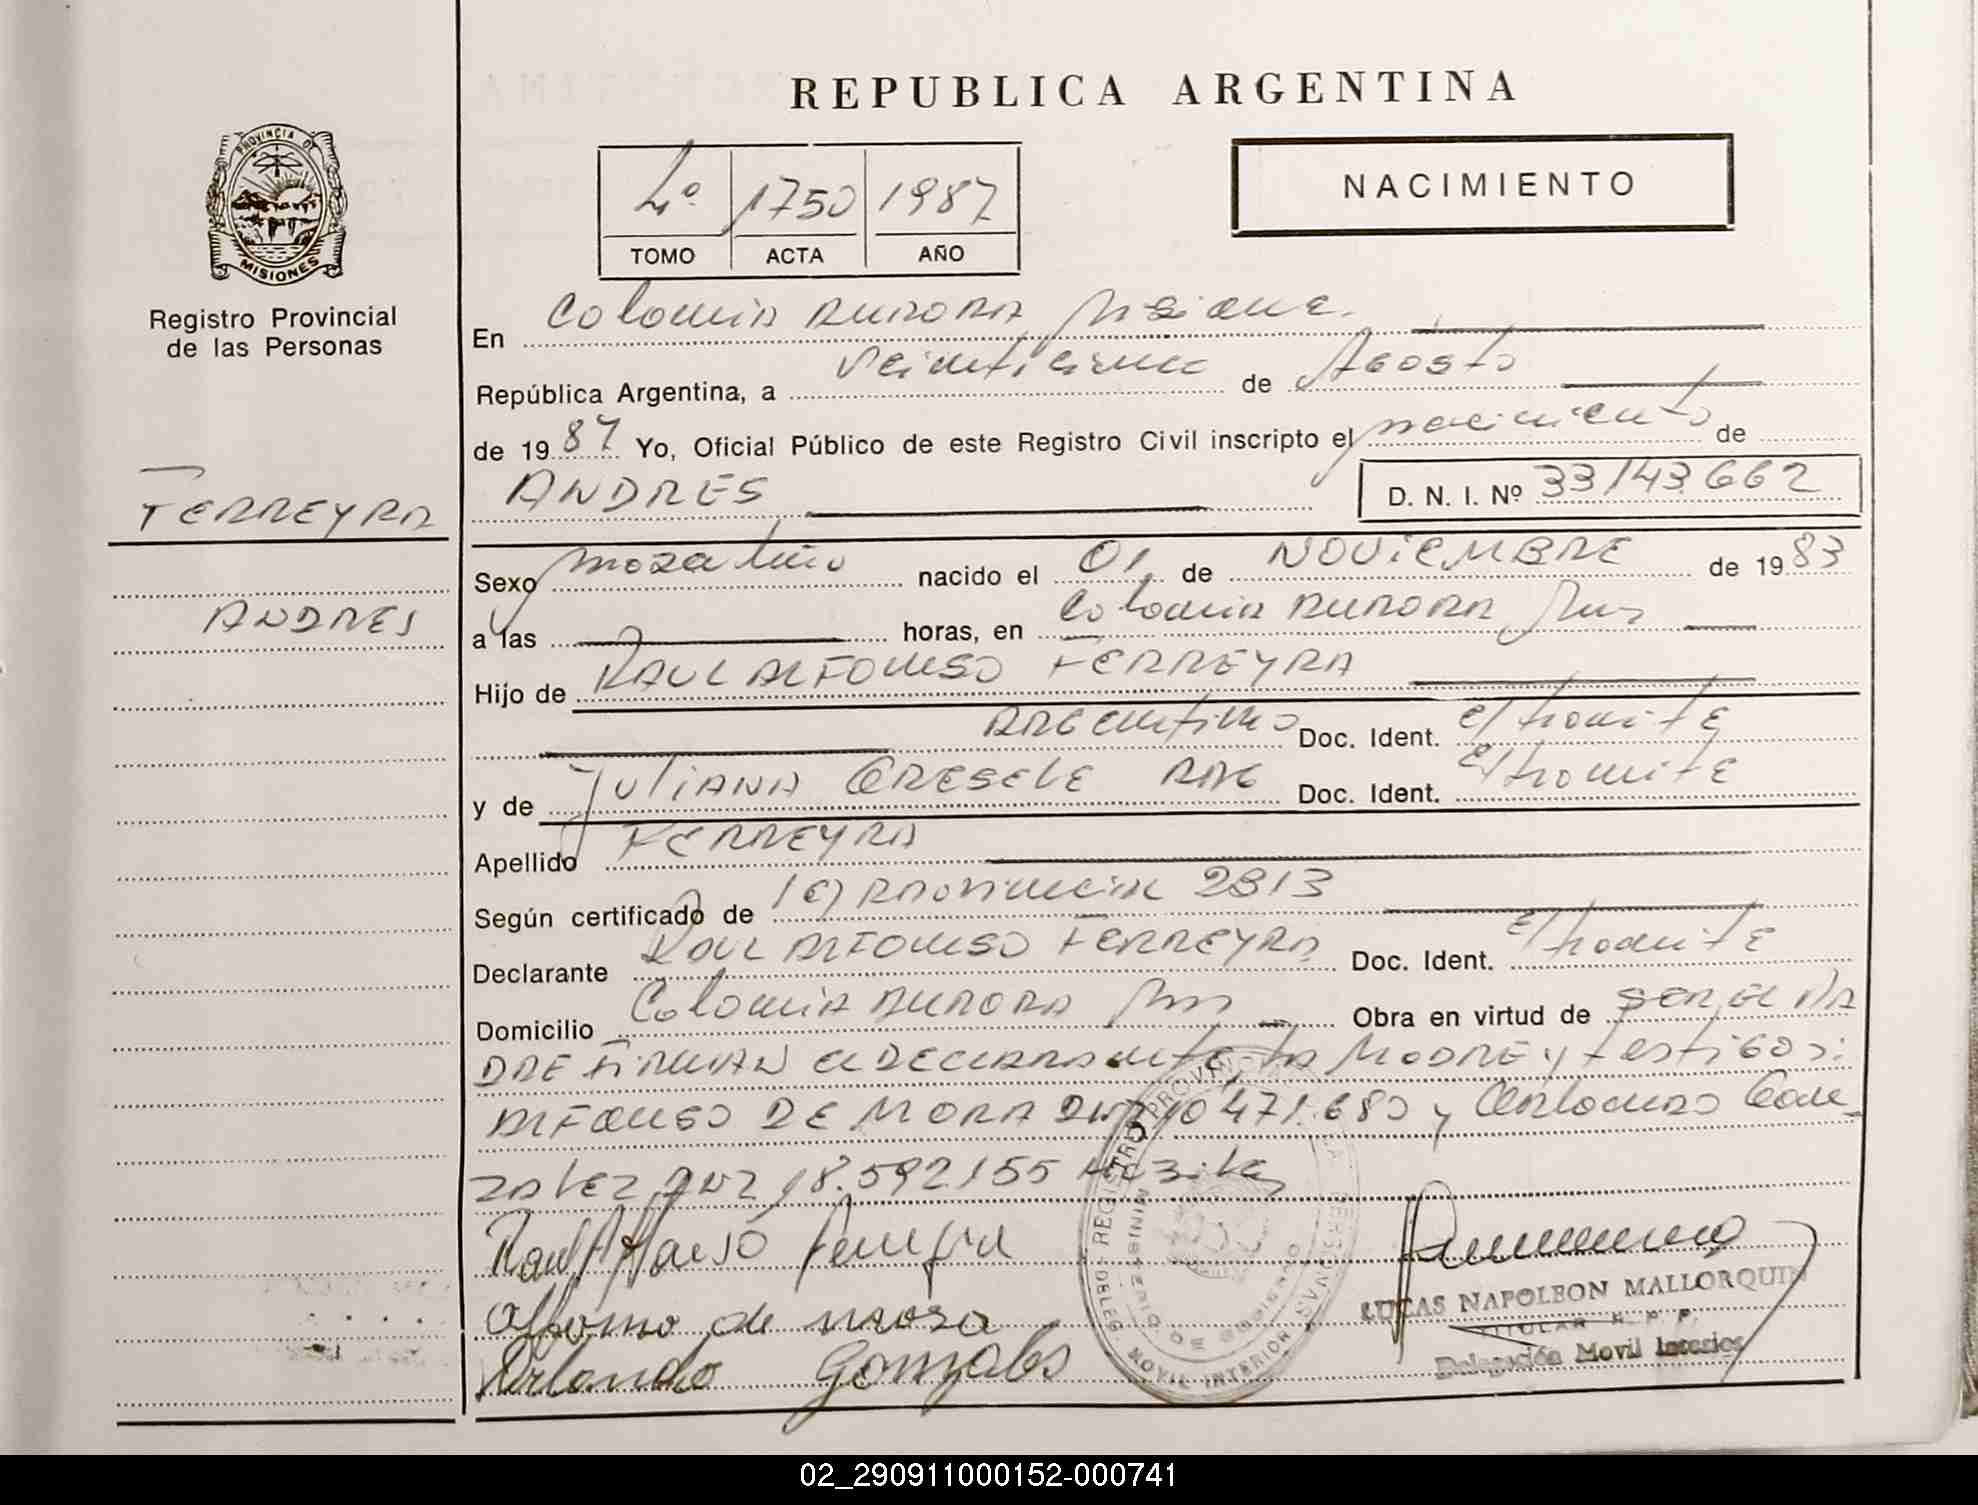 REPUBLICA ARGENTINA
PROVINCIA DE
MISIONES
Registro Provincial
de las Personas
4º 1750 1987
TOMO ACTA AÑO
NACIMIENTO
En Colonia Aurora Misiones
República Argentina, a Veinticinco de Agosto
de 1987 Yo, Oficial Público de este Registro Civil inscripto el nacimiento de
FERREYRA
ANDRES D. N. I. Nº 33143662
Sexo masculino nacido el 01 de NOVIEMBRE de 1983
ANDRES
a las horas, en Colonia Aurora Mns
Hijo de RAUL ALFONSO FERREYRA
Argentino Doc. Ident. E/tramite
y de JULIANA ARG Doc. Ident. E/tramite
Apellido FERREYRA
Según certificado de Provincial 2813
Declarante RAUL ALFONSO FERREYRA Doc. Ident. E/tramite
Domicilio Colonia Aurora Mns Obra en virtud de SER EL PA
DRE FIRMAN el DECLARANTE, la MADRE y testigos:
ALFONSO DE MORA 10471.680 y Orlando Gon
zalez 18.592155
Raul Alfonso Ferreyra
Alfonso de mora
Orlando Gonzales
REGISTRO PROVINCIAL DE LAS PERSONAS
MINISTERIO DE GOBIERNO
MOVIL INTERIOR
LUCAS NAPOLEON MALLORQUIN
TITULAR R. P. P.
Delegación Movil Interior
02_290911000152-000741